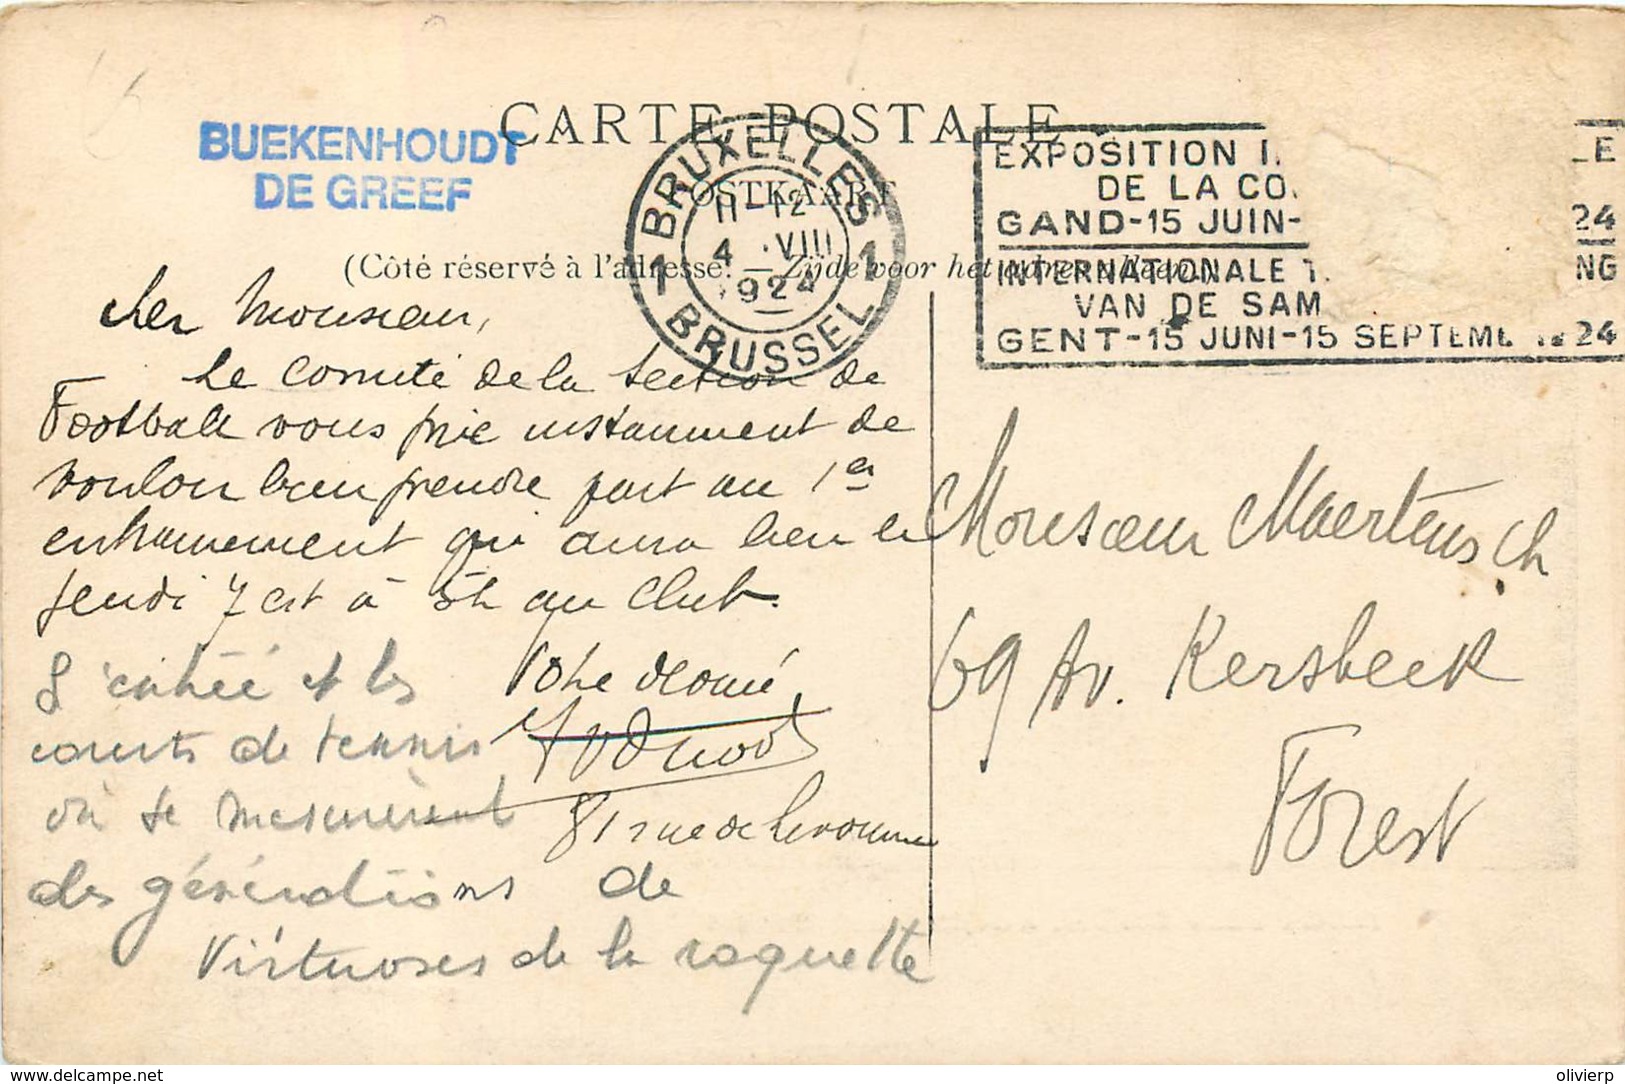 CARTE POSTALE
BUEKENHOUDT
DE GREEF
POSTKAART
(Côté réservé à l'adresse. — Zijde voor het adres alleen.
BRUXELLES
11-12
4 VIII
1924
1 1
BRUSSEL
EXPOSITION I. LE
DE LA CO.
GAND-15 JUIN- 24
INTERNATIONALE T NG
VAN DE SAM
GENT-15 JUNI-15 SEPTEMB 1924
Cher Monsieur,
Le Comité de la Section de
Football vous prie instamment de
vouloir bien prendre part au 1er
entrainement qui aura lieu le
jeudi 7 cst à 5h au Club.
Votre dévoué
81 rue de
L'entrée et les
courts de tennis
où se mesurèrent
des générations de
Virtuoses de la raquette
Monsieur Maertens Ch
69 Av. Kersbeek
Forest
delcampe.net
olivierp